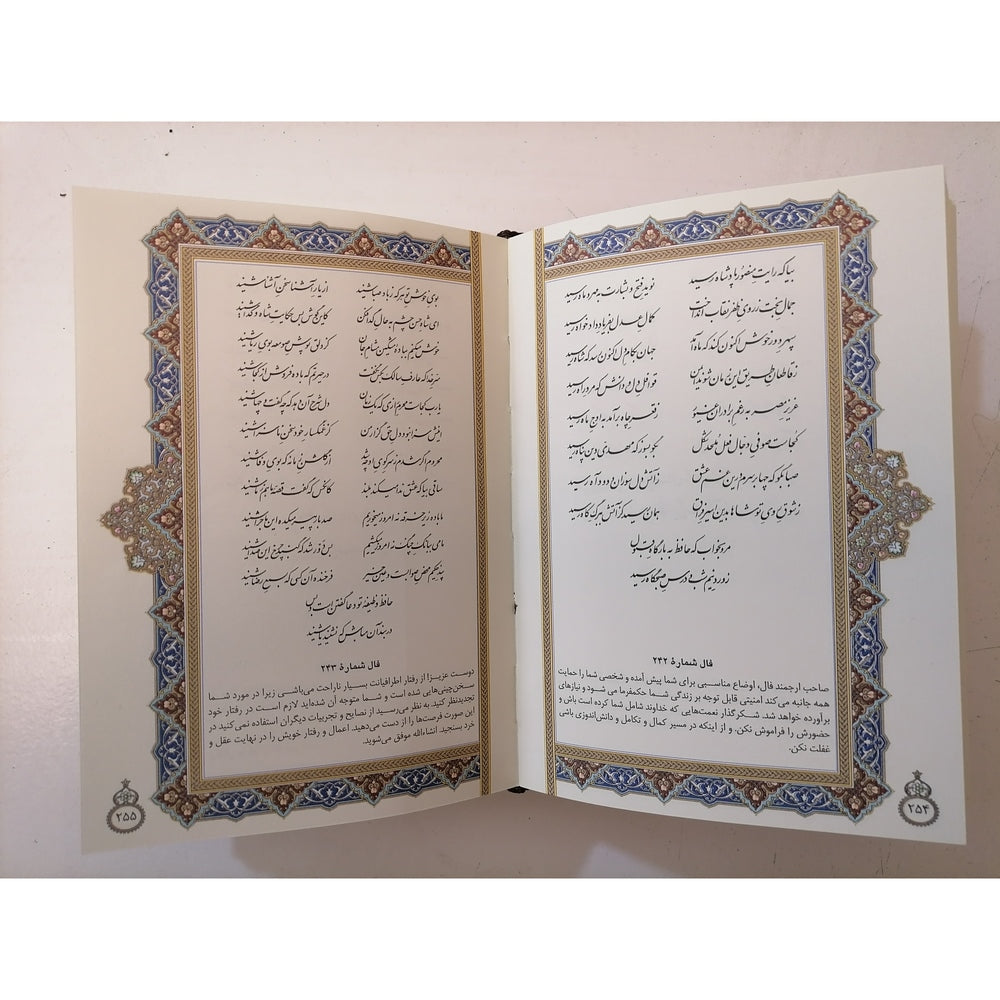 بیا که رایت منصور پادشاه رسید نوید فتح و بشارت به مهر و ماه رسید
جمال بخت ز روی ظفر نقاب انداخت کمال عدل به فریاد دادخواه رسید
سپهر دور خوش اکنون کند که ماه آمد جهان به کام دل اکنون رسد که شاه رسید
ز قاطعان طریق این زمان شوند ایمن قوافل دل و دانش که مرد راه رسید
عزیز مصر به رغم برادران غیور ز قعر چاه برآمد به اوج ماه رسید
کجاست صوفی دجال فعل ملحد شکل بگو بسوز که مهدی دین پناه رسید
صبا بگو که چه‌ها بر سرم درین غم عشق ز آتش دل سوزان و دود آه رسید
ز شوق روی تو شاها بدین اسیر فراق همان رسید کز آتش به برگ کاه رسید
مرو به خواب که حافظ به بارگاه قبول
ز ورد نیم شب و درس صبحگاه رسید
فال شمارهٔ ۲۴۲
صاحب ارجمند فال، اوضاع مناسبی برای شما پیش آمده و شخصی شما را حمایت
همه جانبه می‌کند امنیتی قابل توجه بر زندگی شما حکمفرما می شود و نیازهای
برآورده خواهد شد. شکرگذار نعمت‌هایی که خداوند شامل شما کرده است باش و
حضورش را فراموش نکن. و از اینکه در مسیر کمال و تکامل و دانش‌اندوزی باشی
غفلت نکن.
۲۵۴
بوی خوش تو هر که ز باد صبا شنید از یار آشنا سخن آشنا شنید
ای شاه حسن چشم به حال گدا فکن کاین گوش بس حکایت شاه و گدا شنید
خوش می‌کنم به باده مشکین مشام جان کز دلق پوش صومعه بوی ریا شنید
سر خدا که عارف سالک به کس نگفت در حیرتم که باده فروش از کجا شنید
یارب کجاست محرم رازی که یک زمان دل شرح آن دهد که چه گفت و چه‌ها شنید
اینش سزا نبود دل حق گزار من کز غمگسار خود سخن ناسزا شنید
محروم اگر شدم ز سر کوی او چه شد از گلشن زمانه که بوی وفا شنید
ساقی بیا که عشق ندا می‌کند بلند کانکس که گفت قصه ما هم ز ما شنید
ما باده زیر خرقه نه امروز می‌خوریم صد بار پیر میکده این ماجرا شنید
ما می به بانگ چنگ نه امروز می‌کشیم بس دور شد که گنبد چرخ این صدا شنید
پند حکیم محض صواب است و عین خیر فرخنده آن کسی که به سمع رضا شنید
حافظ وظیفه تو دعا گفتن است و بس
دربند آن مباش که نشنید یا شنید
فال شمارهٔ ۲۴۳
دوست عزیز! از رفتار اطرافیانت بسیار ناراحت می‌باشی زیرا در مورد شما
سخن‌چینی‌هایی شده است و شما متوجه آن شده‌اید لازم است در رفتار خود
تجدیدنظر کنید. به نظر می‌رسید از نصایح و تجربیات دیگران استفاده نمی‌کنید در
این صورت فرصت‌ها را از دست می‌دهید. اعمال و رفتار خویش را در نهایت عقل و
خرد بسنجید. انشاءالله موفق می‌شوید.
۲۵۵